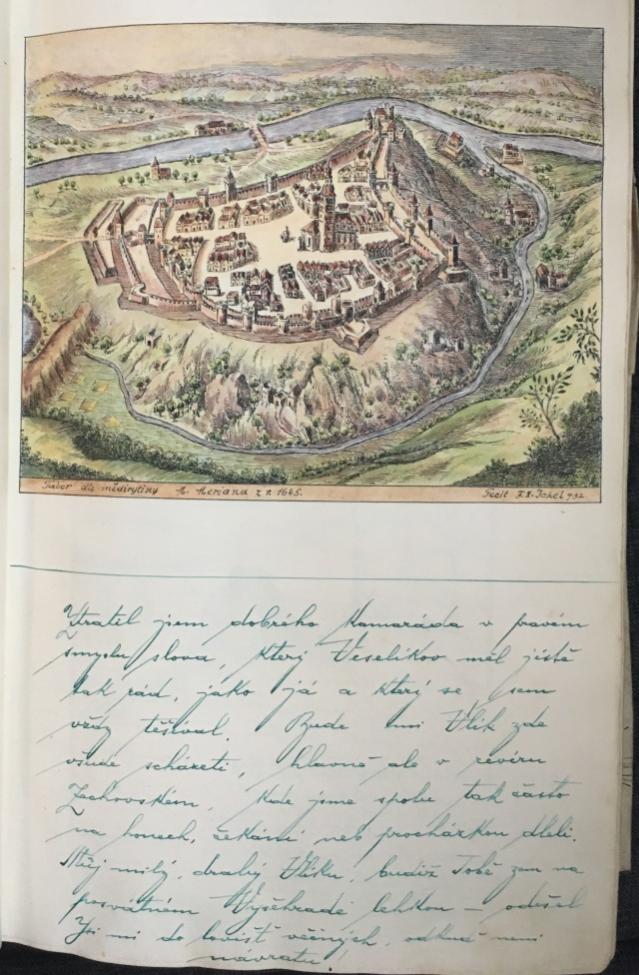 Tábor dle mědirytiny M. Meriana z r. 1645. Fecit F. X. 932
Ztratil jsem dobrého kamaráda v pravém
smyslu slova, který Veselíkov měl jistě
tak rád, jako já a který se sem
vždy těšíval. Bude mi Vlík zde
všude scházeti, hlavně ale v revíru
kde jsme spolu tak často
na honech, čekání neb procházkou dleli.
Můj milý, drahý Vlíku, budiž Tobě zem na
posvátném Vyšehradě lehkou – odešel
Jsi mi do lovišť věčných, odkud není
návratu!